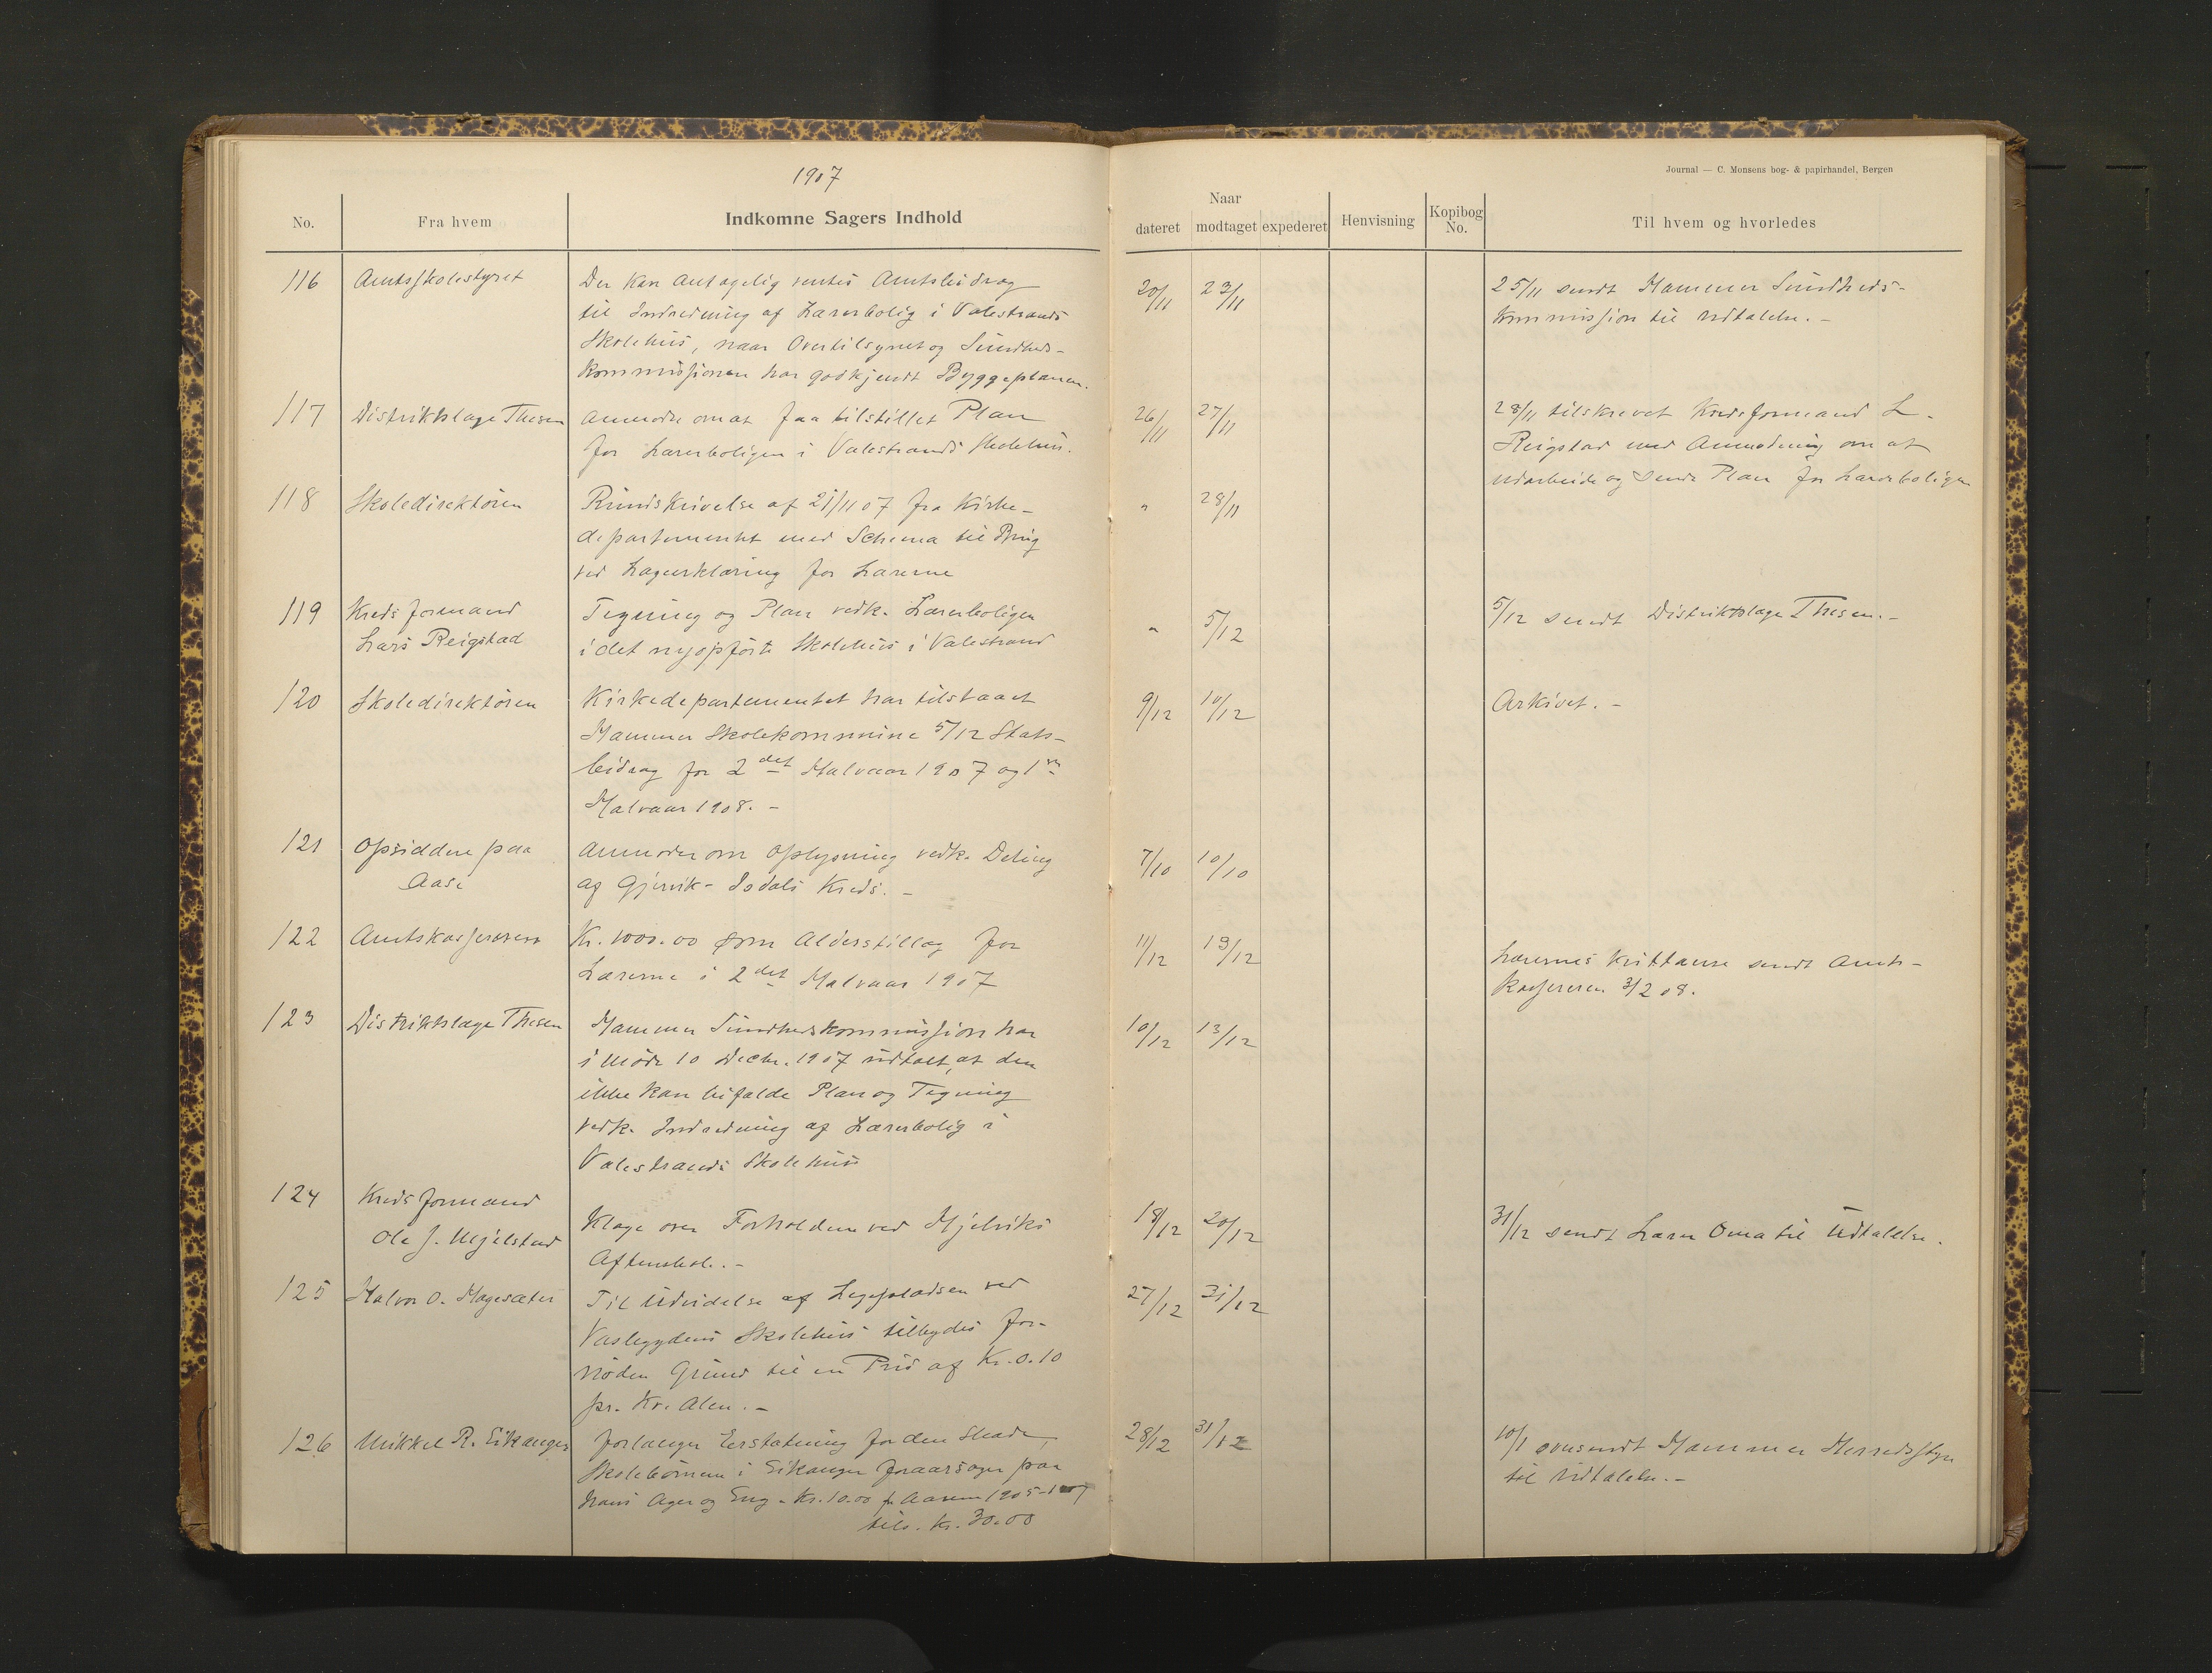 1907
Journal — C. Monsens bog- & papirhandel, Bergen
No. Fra hvem Indkomne Sagers Indhold Naar dateret modtaget expederet Henvisning Kopibog No. Til hvem og hvorledes
116 Amtsskolestyret Der kan antagelig ventes Amtsbidrag 20/11 23/11 25/11 sendt Hammer Sundheds-
til Indredning af Lærerbolig i Valestrands kommission til Udtalelse. -
Skolehus, naar Overtilsynet og Sundheds-
kommissionen har godkjendt Byggeplanen.
117 Distriktslæge Thesen anmoder om at faa tilstillet Plan 26/11 27/11 28/11 tilskrevet Kredsformand L.
for Lærerboligen i Valestrands Skolehus. Reigstad med Anmodning om at
udarbeide og sende Plan for Lærerboligen
118 Skoledirektören Rundskrivelse af 21/11 07 fra Kirke- " 28/11
departementet med Schema til Brug
ved Lægeerklæring for Lærerne
119 Kredsformand Tegning og Plan vedk. Lærerboligen " 5/12 5/12 sendt Distriktslæge Thesen. -
Lars Reigstad i det nyopförte Skolehus i Valestrand
120 Skoledirektören Kirkedepartementet har tilstaaet 9/12 10/12 Arkivet. -
Hammer Skolekommune 5/12 Stats-
bidrag for 2det Halvaar 1907 og 1ste
Halvaar 1908. -
121 Opsiddere paa Anmoder om Oplysning vedk. Deling 7/10 10/10
Aase af Gjervik - Isdals Kreds. -
122 Amtskassereren Kr. 1000.00 som Alderstillæg for 11/12 13/12 Lærernes Kvittanse sendt Amts-
Lærerne i 2det Halvaar 1907 kassereren 3/2 08.
123 Distriktslæge Thesen Hammer Sundhedskommission har 10/12 13/12
i Möde 10 Decbr. 1907 udtalt, at den
ikke kan bifalde Plan og Tegning
vedk. Indredning af Lærerbolig i
Valestrands Skolehus
124 Kredsformand
Ole J. Mjelstad Klage over Forholdene ved Hjelviks 18/12 20/12 31/12 sendt Lærer Oma til Udtalelse.
Aftenskol. -
125 Halvor O. Hagesæter Til Udvidelse af Legepladsen ved 27/12 31/12
Vasbygdens Skolehus tilbydes for-
nöden Grund til en Pris af Kr. 0.10
pr. Kv. Alen. -
126 Mikkel R. Eikanger forlanger Erstatning for den Skade, 28/12 31/12 10/1 oversendt Hammer Herredsstyre
Skolebörnene i Eikanger foraarsager paa til Udtalelse. -
hans Ager og Eng - Kr. 10.00 for Aarene 1905-1907
tils. Kr. 30.00